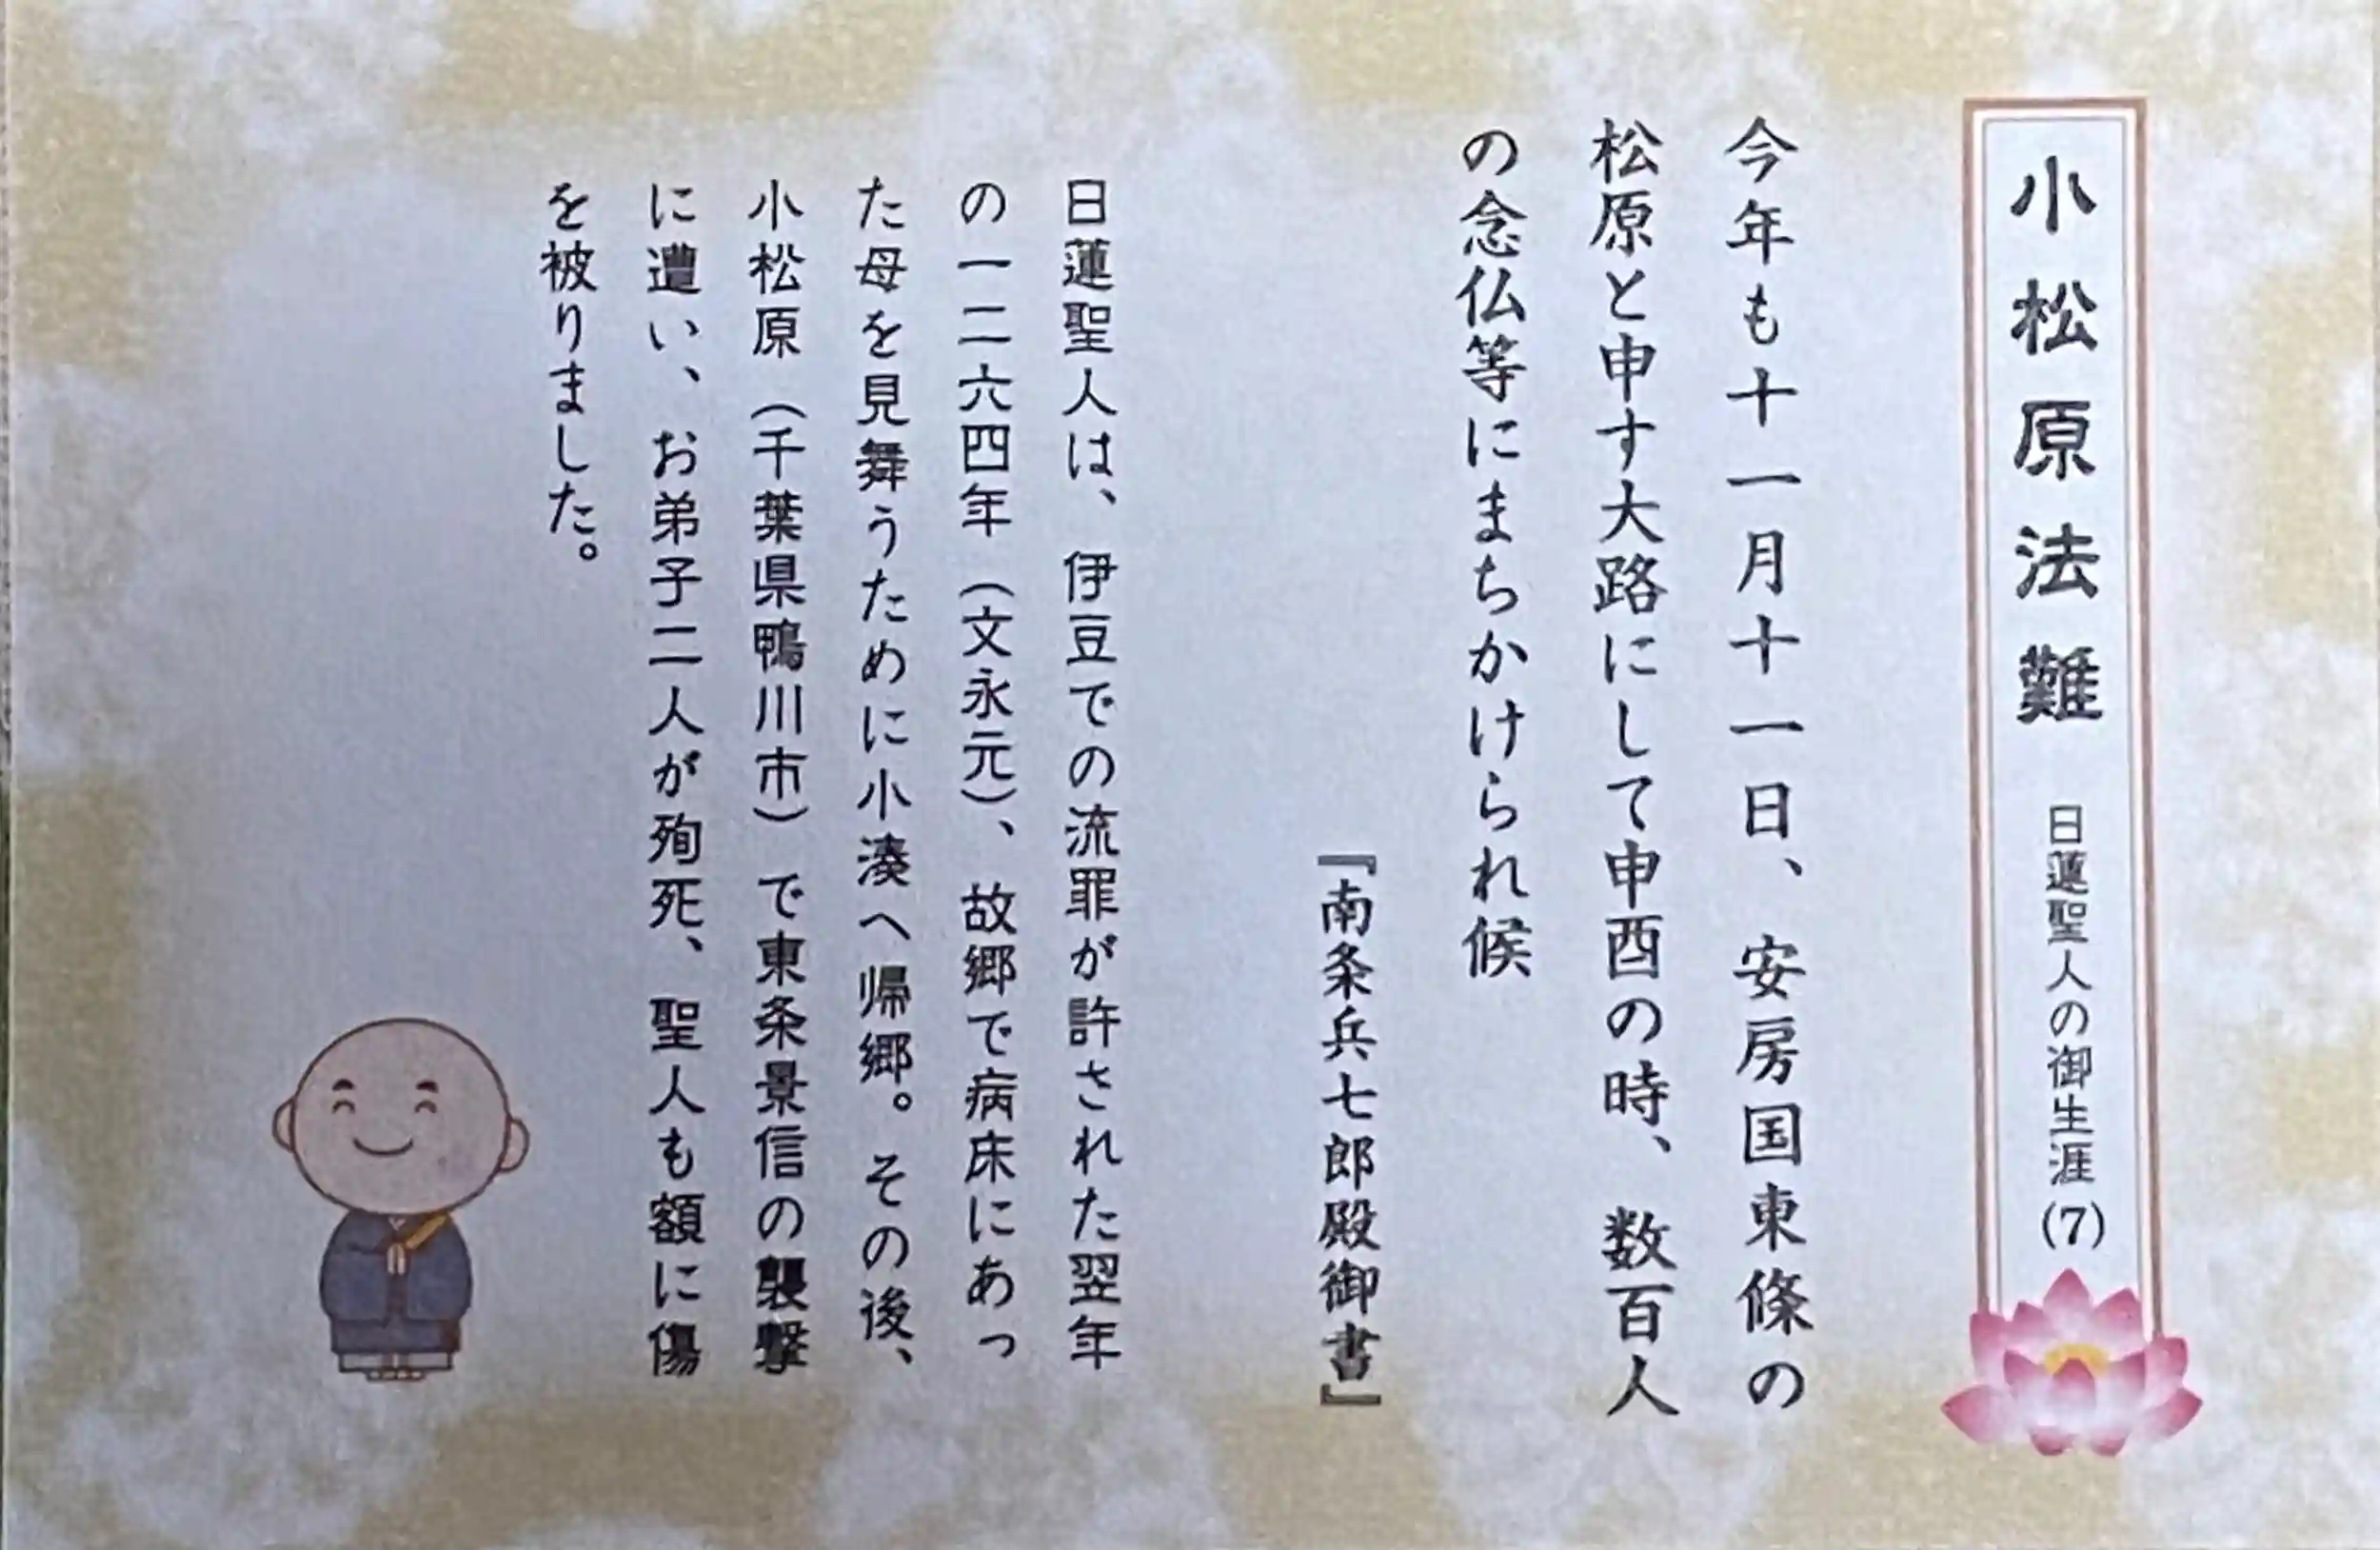 小松原法難 日蓮聖人の御生涯(7)
今年も十一月十一日、安房国東條の
松原と申す大路にして申酉の時、数百人
の念仏等にまちかけられ候
『南条兵七郎殿御書』
日蓮聖人は、伊豆での流罪が許された翌年
の一二六四年（文永元）、故郷で病床にあっ
た母を見舞うために小湊へ帰郷。その後、
小松原（千葉県鴨川市）で東条景信の襲撃
に遭い、お弟子二人が殉死、聖人も額に傷
を被りました。